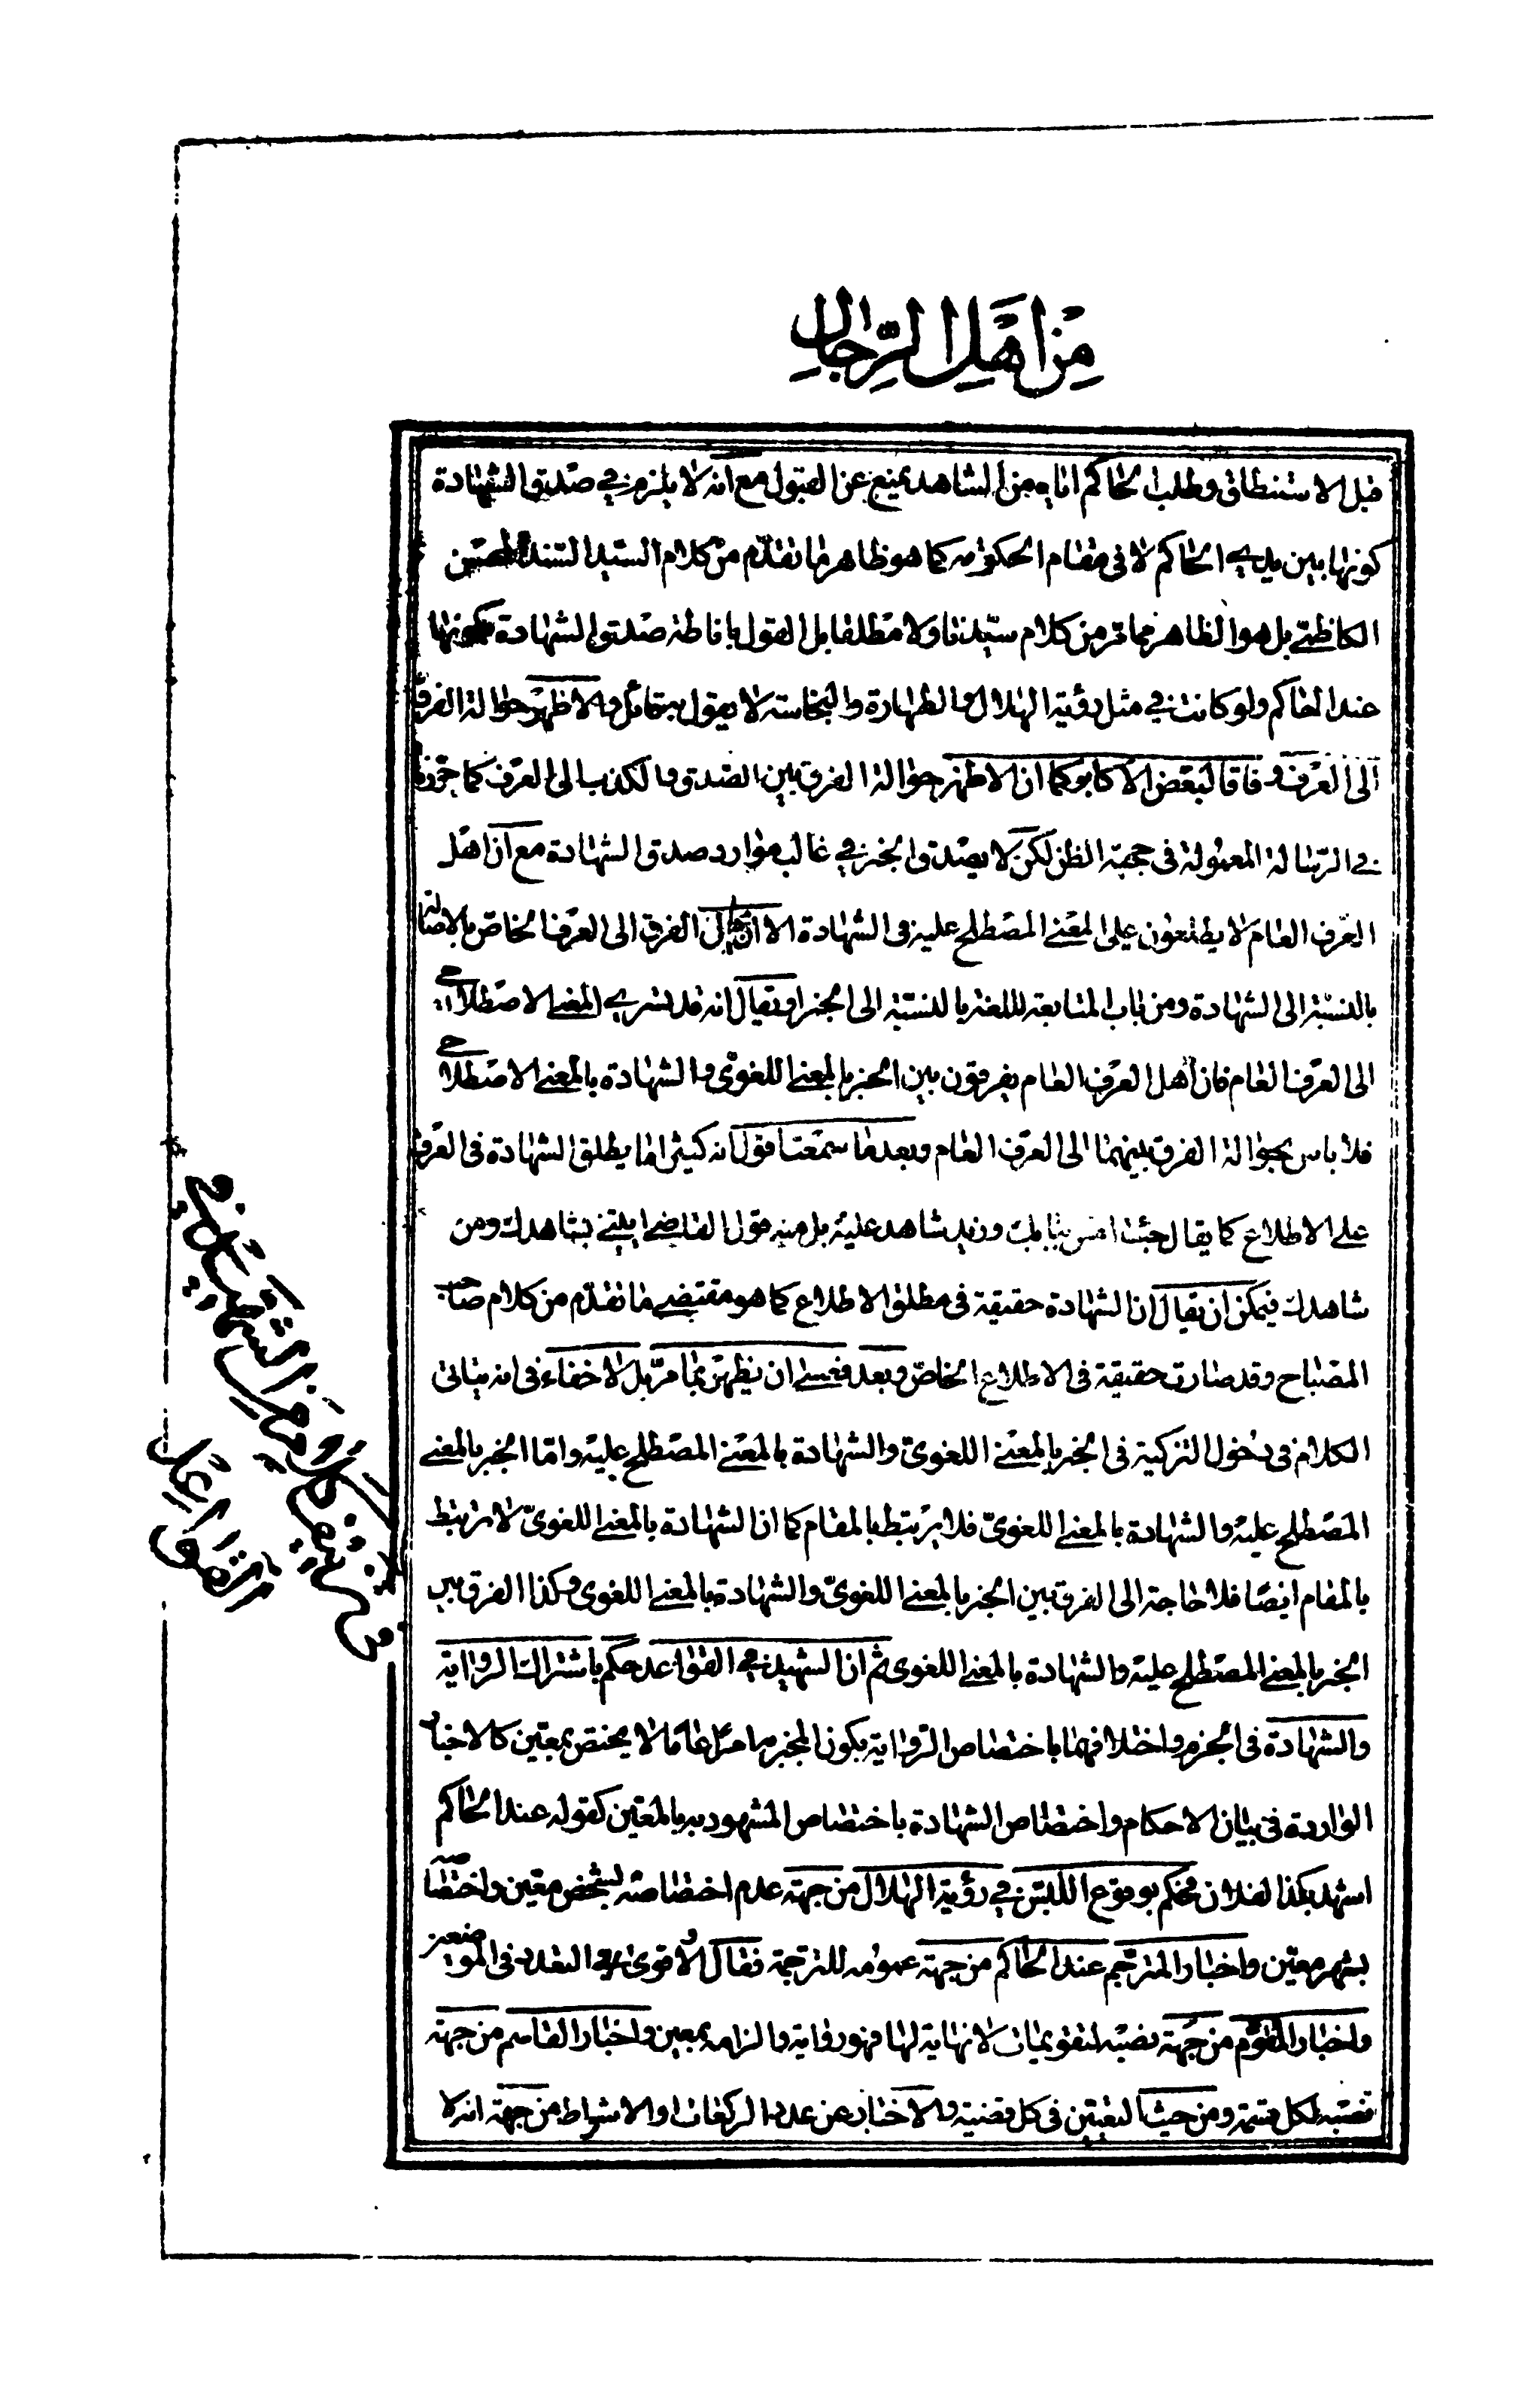 من اهل الرجال
قبل الاستنطاق وطلب الحاكم اياه من الشاهد يمنع عن القبول مع انه لا يلزم في صدق الشهادة
كونها بين يدي الحاكم لا في مقام الحكومه كما هو ظاهر ما تقدّم من كلام السيد السند المحسن
الكاظمي بل هو الظاهر مما مر من كلام سيدنا ولا مطلقا بل القول باناطة صدق الشهادة بكونها
عند الحاكم ولو كانت في مثل رؤية الهلال والطهارة والنجاسته لا يقول به قائل والاظهر حوالة الفرق
الى العرف وفاقا لبعض الاكابر كما ان الاظهر حوالة الفرق بين الصدق والكذب الى العرف كما حررناه
في الرسالة المعمولة في حجية الظن لكن لا يصدق الخبر في غالب موارد صدق الشهادة مع ان اهل
العرف العام لا يطلعون على المعنى المصطلح عليه في الشهادة الا ان الفرق الى العرف الخاص بالاصالة
بالنسبة الى الشهادة ومن باب المتابعة للغة بالنسبة الى الخبر او يقال انه قد يسرى المعنى الاصطلاحي
الى العرف العام فان اهل العرف العام يفرقون بين الخبر بالمعنى اللغوي والشهادة بالمعنى الاصطلاحي
فلا باس بحوالة الفرق بينهما الى العرف العام وبعد ما سمعت اقول انه كثيرا ما يطلق الشهادة في العرف
على الاطلاع كما يقال جئت امس ببابك وزيد شاهد عليه بل منه قول القاضي ايتني بشاهدك ومن
شاهدك فيمكن ان يقال ان الشهادة حقيقة في مطلق الاطلاع كما هو مقتضى ما تقدّم من كلام صاحب
المصباح وقد صارت حقيقة في الاطلاع الخاص وبعد فعسى ان يظهر بما مرّ بل لا خفاء في انه يتاتى
الكلام في دخول التزكية في الخبر بالمعنى اللغوي والشهادة بالمعنى المصطلح عليه وامّا الخبر بالمعنى
المصطلح عليه والشهادة بالمعنى اللغويّ فلا يرتبط بالمقام كما ان الشهادة بالمعنى اللغويّ لا يرتبط
بالمقام ايضا فلا حاجة الى الفرق بين الخبر بالمعنى اللغويّ والشهادة بالمعنى اللغوى وكذا الفرق بين
الخبر بالمعنى المصطلح عليه والشهادة بالمعنى اللغوى ثم ان الشهيد في القواعد حكم باشتراك الرواية
والشهادة في الجزم واختلافهما باختصاص الرواية بكون المخبر به امرا عاما لا يختص بمعين كالاخبار
الواردة في بيان الاحكام واختصاص الشهادة باختصاص المشهود به بالمعين كقوله عند الحاكم
اشهد بكذا لفلان فحكم بوقوع اللبس في رؤية الهلال من جهته عدم اختصاصه لشخص معين واختصاصه
بشهر معين واخبار المترجم عند الحاكم من جهة عمومه للترجمة فقال والاقوى التعدد في الموضعين
واخبار المقوم من جهة نصبه لتقويمات لا نهاية لها فهو رواية والزامه بمعين واخبار القاسم من جهة
نصبه لكل قسمة ومن حيث التعيين في كل قضية والاخبار عن عدد الركعات او الاشواط من جهة انه لا